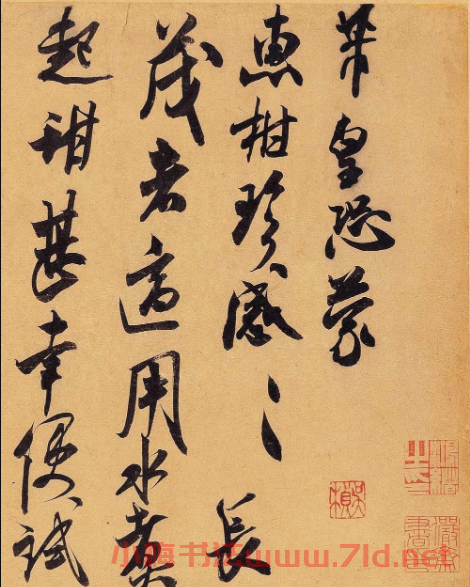 芾皇恐蒙
惠柑珍感〻長
茂者適用水煮
起甜甚幸便試
小梅书法www.7ld.net